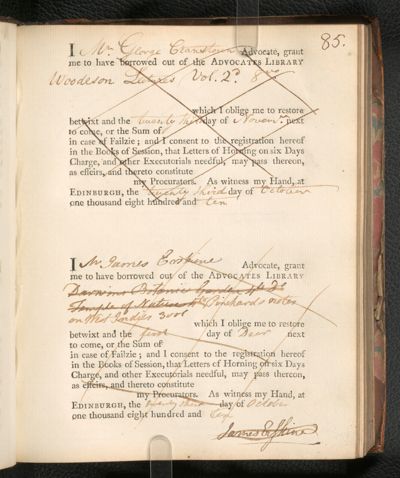 85.
I Mr. George Cranstoun Advocate, grant
me to have borrowed out of the ADVOCATES LIBRARY
Woodeson Lectures Vol. 2d. 8vo
which I oblige me to restore
betwixt and the twenty third day of Novemr. next
to come, or the Sum of
in case of Failzie; and I consent to the registration hereof
in the Books of Session, that Letters of Horning on six Days
Charge, and other Executorials needful, may pass thereon,
as effeirs, and thereto constitute
my Procurators. As witness my Hand, at
EDINBURGH, the twenty third day of October
one thousand eight hundred and ten
I Mr. James Erskine Advocate, grant
me to have borrowed out of the ADVOCATES LIBRARY
Darwins Botanic Garden 4to &
Temple of Nature 4to Pinckards notes
on West Indies 3 vols
which I oblige me to restore
betwixt and the first day of Decr next
to come, or the Sum of
in case of Failzie; and I consent to the registration hereof
in the Books of Session, that Letters of Horning on six Days
Charge, and other Executorials needful, may pass thereon,
as effeirs, and thereto constitute
my Procurators. As witness my Hand, at
EDINBURGH, the twenty third day of October
one thousand eight hundred and ten
James Erskine